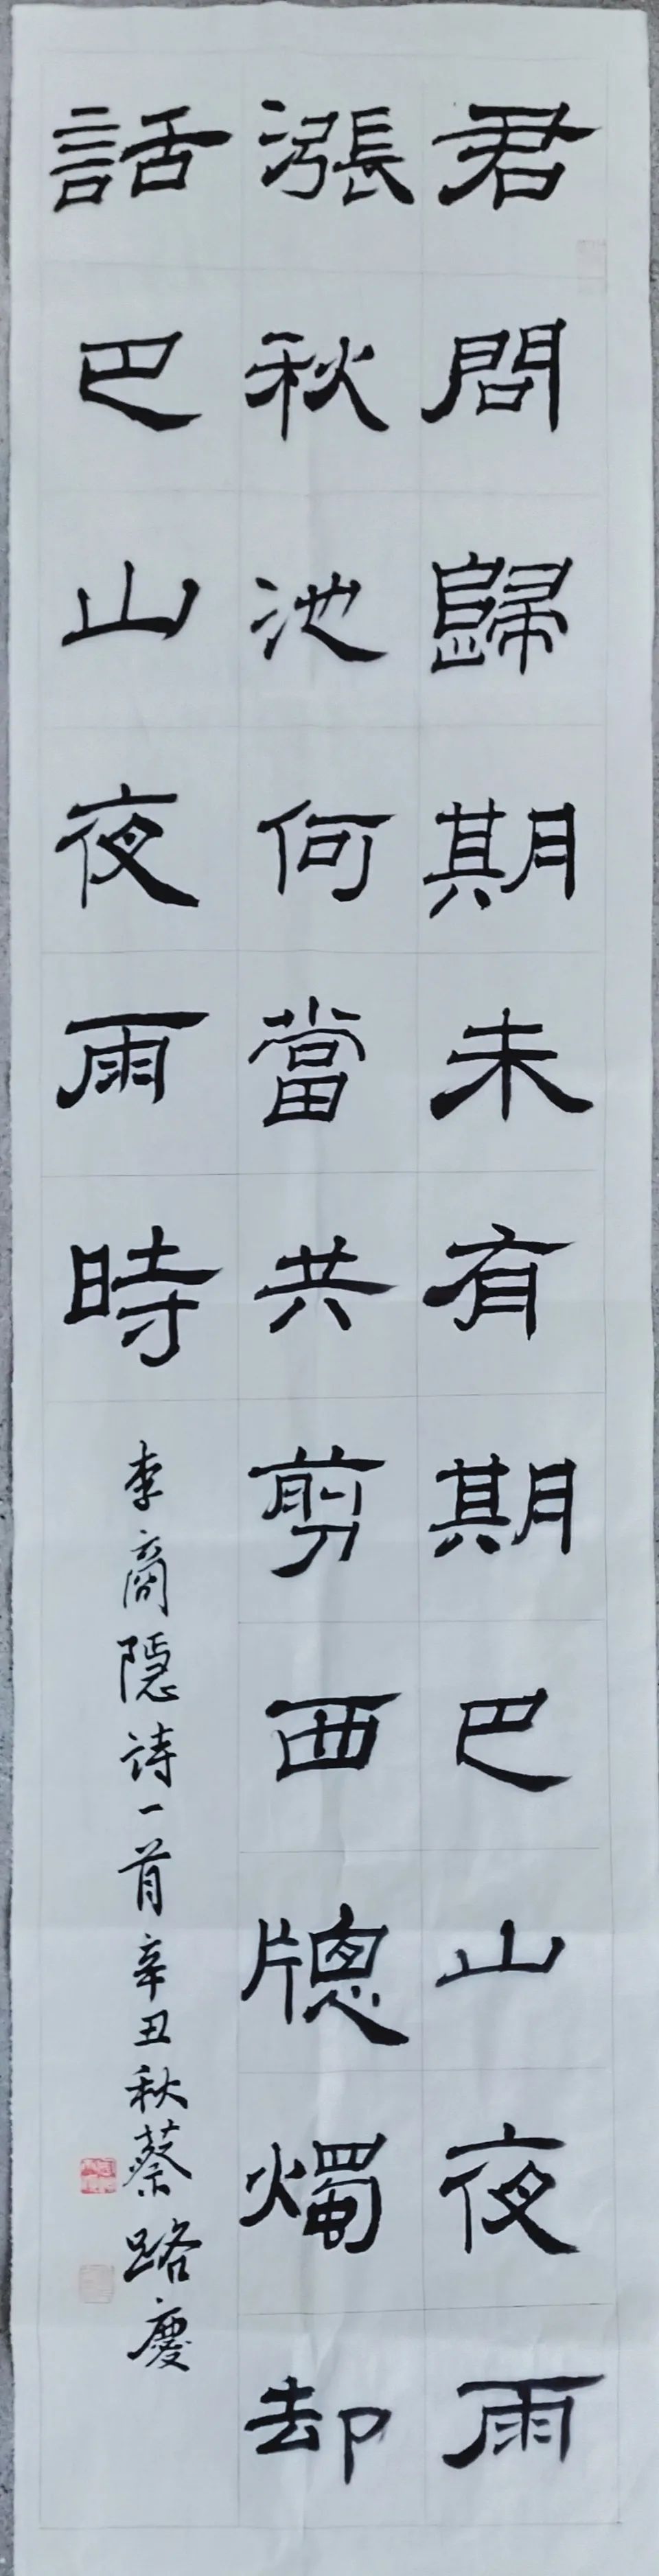 君問歸期未有期巴山夜雨
漲秋池何當共剪西牕燭却
話巴山夜雨時
李商隱诗一首辛丑秋蔡路慶